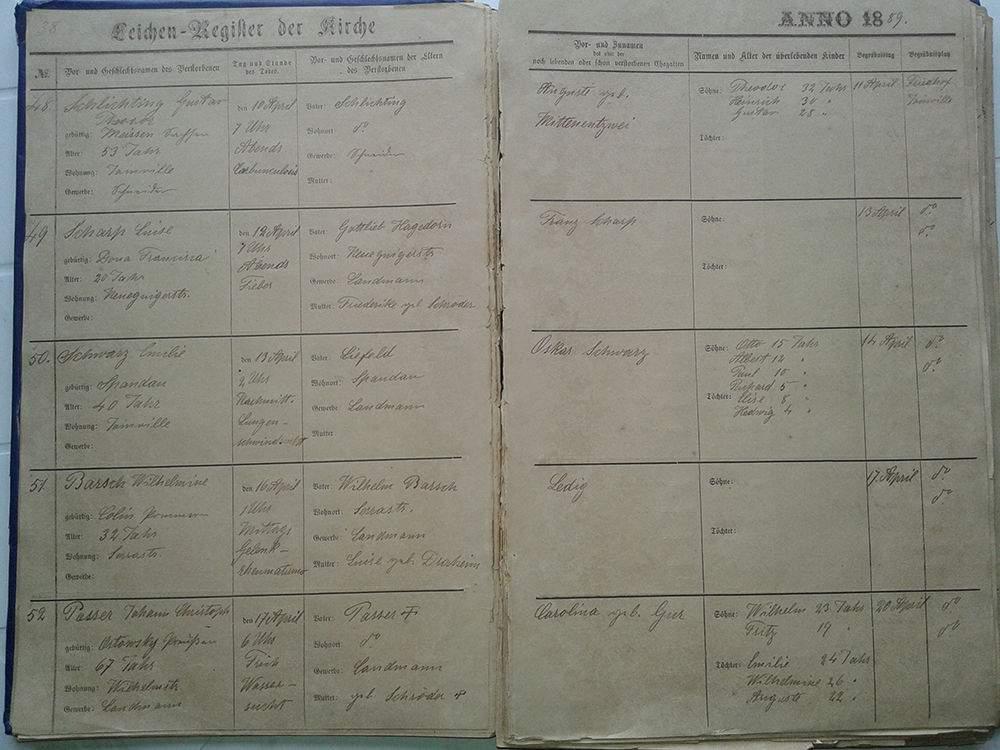 38
Leichen-Register der Kirche
№
Vor- und Geschlechtsnamen des Verstorbenen
Tag und Stunde des Todes.
Vor- und Geschlechtsnamen der Eltern des Verstorbenen
48.
Schlichting Gustav
gebürtig: Meissen
Alter: 53 Jahr
Wohnung: Joinville
Gewerbe: Schneider
den 10 April
7 Uhr
Abends
Vater: Schlichting
Wohnort: do
Gewerbe: Schneider
Mutter:
49
Scharf Luise
gebürtig: Dona Francisca
Alter: 20 Jahr
Wohnung:
Gewerbe:
den 12 April
7 Uhr
Abends
Fieber
Vater: Gottlieb Hagedorn
Wohnort:
Gewerbe: Landmann
Mutter: Friederike geb. Schröder
50.
Schwarz Emilie
gebürtig: Spandau
Alter: 40 Jahr
Wohnung: Joinville
Gewerbe:
den 13 April
2 Uhr
Nachmitt.
Lungen-
schwindsucht
Vater: Liefeld
Wohnort: Spandau
Gewerbe: Landmann
Mutter
51
Barsch Wilhelmine
gebürtig:
Alter: 32 Jahr
Wohnung:
Gewerbe:
den 16 April
1 Uhr
Mittags
Gelenk-
rheumatismus
Vater: Wilhelm Barsch
Wohnort:
Gewerbe: Landmann
Mutter: Luise geb.
52
Passer Johann Christoph
gebürtig:
Alter: 67 Jahr
Wohnung: Wilhelmstr.
Gewerbe: Landmann
den 17 April
6 Uhr
Früh
Wasser-
sucht
Vater: Passer
Wohnort: do
Gewerbe: Landmann
Mutter: geb. Schröder
ANNO 1889.
Vor- und Zunamen
des oder der
noch lebenden oder schon verstorbenen Ehegatten
Namen und Alter der überlebenden Kinder
Begräbnißtag
Begräbnißplatz
Auguste geb.
Mittenentzwei
Söhne: Theodor 32 Jahr
Heinrich 30 "
Gustav 28 "
Töchter:
11 April
Friedhof
Joinville
Franz Scharf
Söhne:
Töchter:
13 April
do
do
Oskar Schwarz
Söhne: Otto 15 Jahr
Albert 12 "
Paul 10 "
Richard 5 "
Töchter: Elise 8 "
Hedwig 4 "
14 April
do
do
Ledig
Söhne:
Töchter:
17 April
do
do
Carolina geb. Gier
Söhne: Wilhelm 23 Jahr
Fritz 19 "
Töchter: Emilie 24 Jahr
Wilhelmine 26 "
Auguste 22 "
20 April
do
do